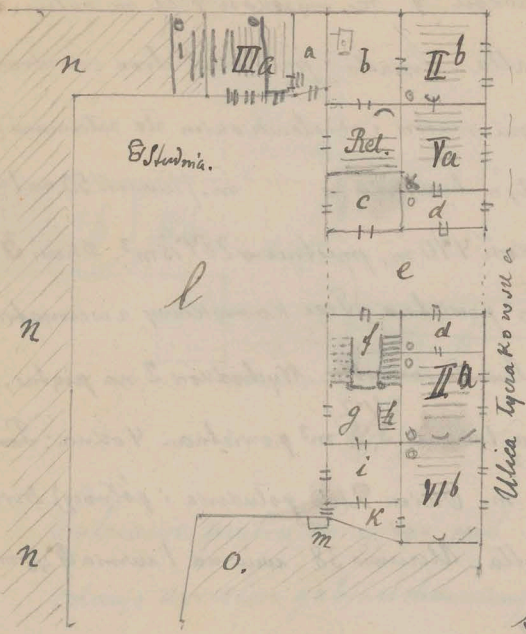 n IIIa a b IIb
Studnia.
Ret. Va
c d
l e
n f d
IIa
g h
i VIb
k
m
n o.
Ulica Łyczakowska